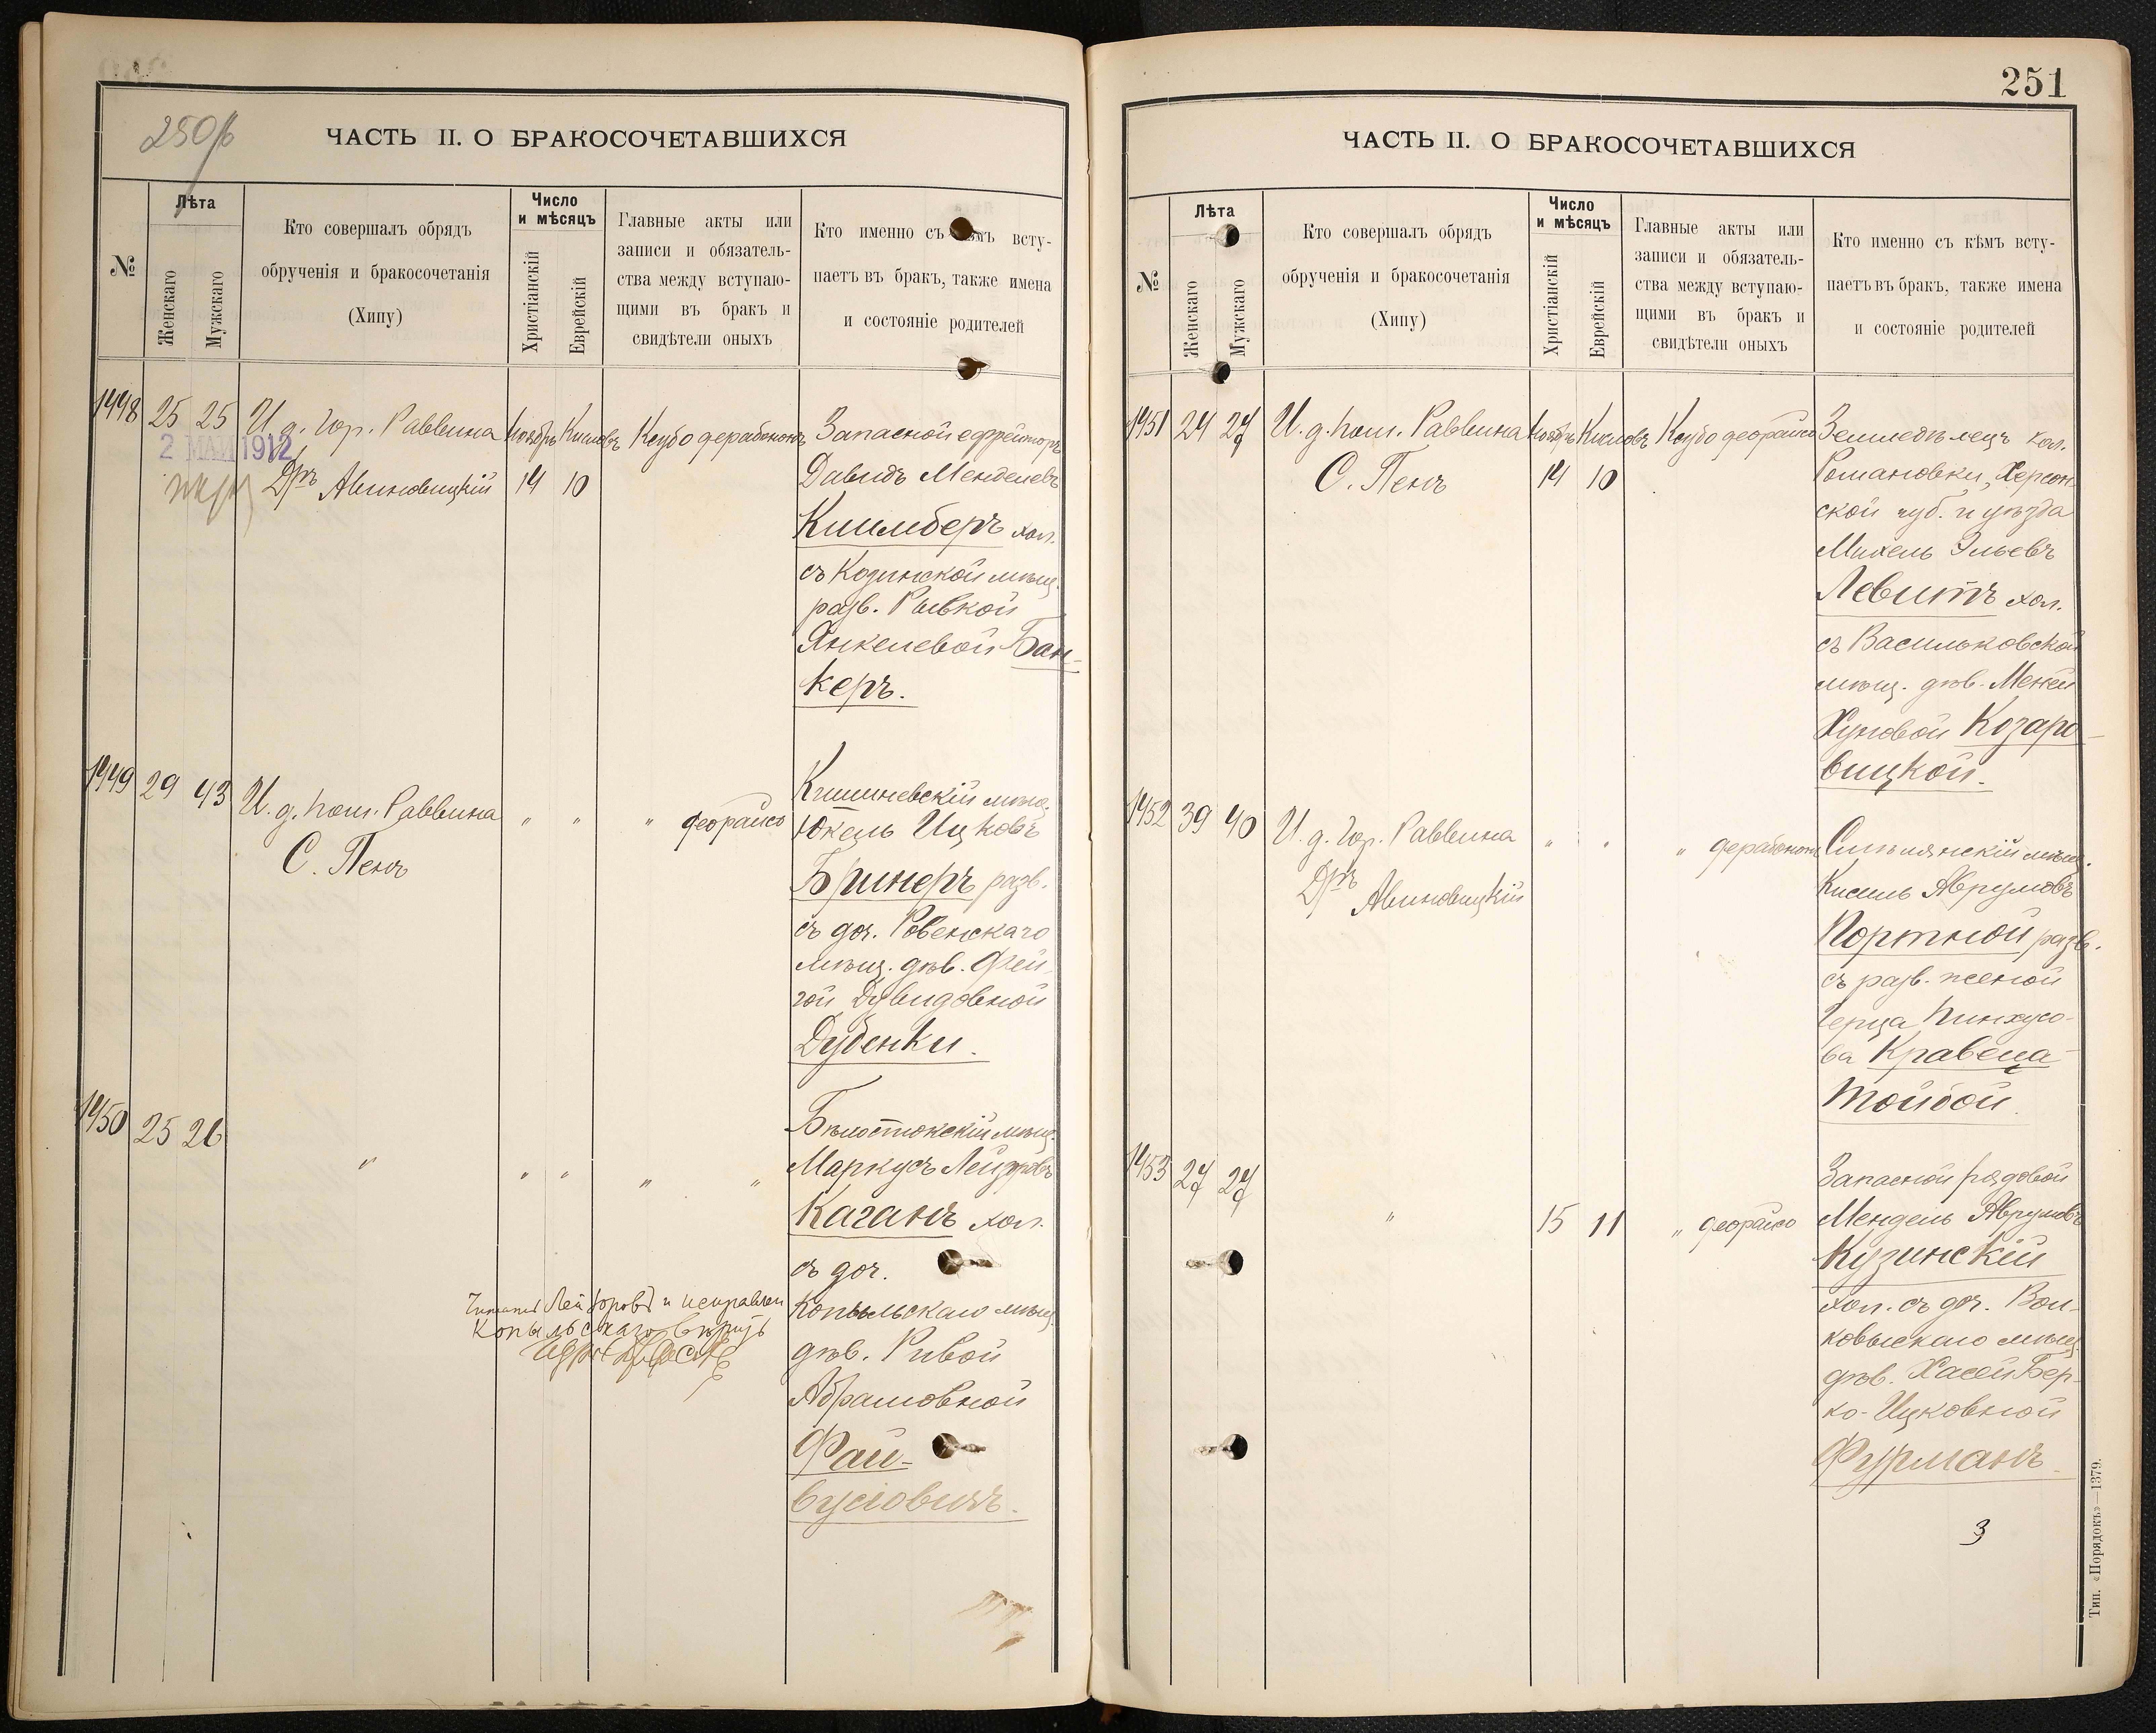 250/б
ЧАСТЬ II. О БРАКОСОЧЕТАВШИХСЯ
№
Лѣта
Женскаго
Мужскаго
Кто совершалъ обрядъ
обрученія и бракосочетанія
(Хипу)
Число
и мѣсяцъ
Христіанскій
Еврейскій
Главные акты или
записи и обязатель-
ства между вступаю-
щими въ бракъ и
свидѣтели оныхъ
Кто именно съ кѣмъ всту-
паетъ въ бракъ, также имена
и состояніе родителей
1448 25 25
И. д. Гор. Раввина
Дръ Авиновицкій
2 МАЙ 1912
Ноябрь Кислевъ
14 10
Запасной ефрейторъ
Давидъ Менделевъ
Кишмберъ хол.
съ Козинской мѣщ.
разв. Рывкой
Янкелевой Бан-
керъ.
1449 29 43
И. д. пом. Раввина
С. Пенъ
" " "
Кишиневскій мѣщ.
Юкель Ицковъ
Бринеръ разв.
съ доч. Ровенскаго
мѣщ. дѣв. Фей-
гой Дувидовной
Дубенки.
1450 25 26
" " " " "
Бѣлостокскій мѣщ.
Маркусъ Лейзеровъ
Каганъ хол.
съ доч.
Копыльскаго мѣщ.
дѣв. Ривой
Абрамовной
Фай-
вусіовичъ.
и исправлен
Копыльскаго вѣрить
251
ЧАСТЬ II. О БРАКОСОЧЕТАВШИХСЯ
№
Лѣта
Женскаго
Мужскаго
Кто совершалъ обрядъ
обрученія и бракосочетанія
(Хипу)
Число
и мѣсяцъ
Христіанскій
Еврейскій
Главные акты или
записи и обязатель-
ства между вступаю-
щими въ бракъ и
свидѣтели оныхъ
Кто именно съ кѣмъ всту-
паетъ въ бракъ, также имена
и состояніе родителей
1451 24 27
И. д. пом. Раввина
С. Пенъ
Ноябрь Кислевъ
14 10
Земледѣлецъ кол.
Романовки, Херсон-
ской губ. и уѣзда
Михель Эльевъ
Левитъ хол.
съ Васильковской
мѣщ. дѣв. Меней
Хуновой Козаро-
вицкой.
1452 39 40
И. д. Гор. Раввина
Дръ Авиновицкій
" " "
Смѣлянскій мѣщ.
Кисиль Аврумовъ
Портной разв.
съ разв. женой
Герца Пинхусо-
ва Кравеца
Тойбой.
1453 27 27
"
15 11
"
Запасной рядовой
Мендель Аврумовъ
Кузинскій
хол. съ доч. Вол-
ковыскаго мѣщ.
дѣв. Хасей Бер-
ко-Ицковной
Фурманъ.
3
Тип. «Порядокъ»—1379.